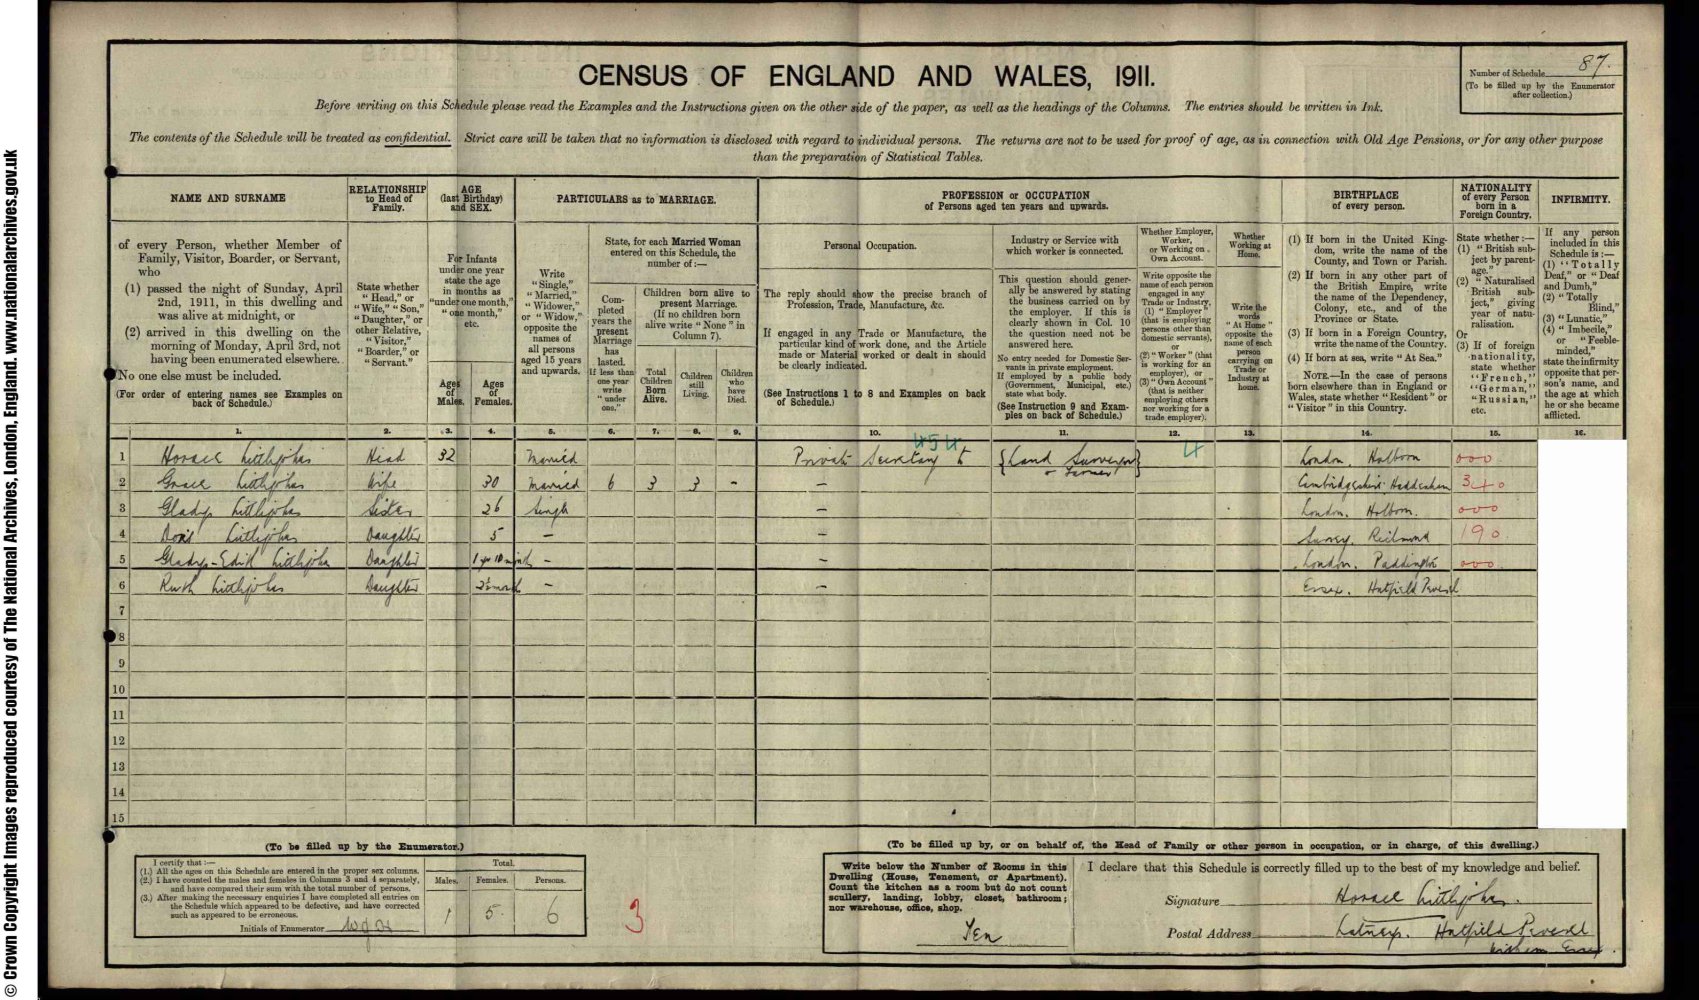 © Crown Copyright Images reproduced courtesy of The National Archives, London, England. www.nationalarchives.gov.uk
CENSUS OF ENGLAND AND WALES, 1911.
Number of Schedule 87.
(To be filled up by the Enumerator
after collection.)
Before writing on this Schedule please read the Examples and the Instructions given on the other side of the paper, as well as the headings of the Columns. The entries should be written in Ink.
The contents of the Schedule will be treated as confidential. Strict care will be taken that no information is disclosed with regard to individual persons. The returns are not to be used for proof of age, as in connection with Old Age Pensions, or for any other purpose
than the preparation of Statistical Tables.
NAME AND SURNAME
RELATIONSHIP
to Head of
Family.
AGE
(last Birthday)
and SEX.
PARTICULARS as to MARRIAGE.
PROFESSION or OCCUPATION
of Persons aged ten years and upwards.
BIRTHPLACE
of every person.
NATIONALITY
of every Person
born in a
Foreign Country.
INFIRMITY.
of every Person, whether Member of
Family, Visitor, Boarder, or Servant,
who
(1) passed the night of Sunday, April
2nd, 1911, in this dwelling and
was alive at midnight, or
(2) arrived in this dwelling on the
morning of Monday, April 3rd, not
having been enumerated elsewhere.
No one else must be included.
(For order of entering names see Examples on
back of Schedule.)
State whether
"Head," or
"Wife," "Son,"
"Daughter," or
other Relative,
"Visitor,"
"Boarder," or
"Servant."
For Infants
under one year
state the age
in months as
"under one month,"
"one month,"
etc.
Ages
of
Males.
Ages
of
Females.
Write
"Single,"
"Married,"
"Widower,"
or "Widow,"
opposite the
names of
all persons
aged 15 years
and upwards.
State, for each Married Woman
entered on this Schedule, the
number of:—
Completed
years the
present
Marriage
has
lasted.
If less than
one year
write
"under
one."
Children born alive to
present Marriage.
(If no children born
alive write "None" in
Column 7).
Total
Children
Born
Alive.
Children
still
Living.
Children
who
have
Died.
Personal Occupation.
The reply should show the precise branch of
Profession, Trade, Manufacture, &c.
If engaged in any Trade or Manufacture, the
particular kind of work done, and the Article
made or Material worked or dealt in should
be clearly indicated.
(See Instructions 1 to 8 and Examples on back
of Schedule.)
Industry or Service with
which worker is connected.
This question should gener-
ally be answered by stating
the business carried on by
the employer. If this is
clearly shown in Col. 10
the question need not be
answered here.
No entry needed for Domestic Ser-
vants in private employment.
If employed by a public body
(Government, Municipal, etc.)
state what body.
(See Instruction 9 and Exam-
ples on back of Schedule.)
Whether Employer,
Worker,
or Working on
Own Account.
Write opposite the
name of each person
engaged in any
Trade or Industry,
(1) "Employer"
(that is employing
persons other than
domestic servants),
or
(2) "Worker" (that
is working for an
employer), or
(3) "Own Account"
(that is neither
employing others
nor working for a
trade employer).
Whether
Working at
Home.
Write the
words
"At Home"
opposite the
name of each
person
carrying on
Trade or
Industry at
home.
(1) If born in the United King-
dom, write the name of the
County, and Town or Parish.
(2) If born in any other part of
the British Empire, write
the name of the Dependency,
Colony, etc., and of the
Province or State.
(3) If born in a Foreign Country,
write the name of the Country.
(4) If born at sea, write "At Sea."
NOTE.—In the case of persons
born elsewhere than in England or
Wales, state whether "Resident" or
"Visitor" in this Country.
State whether:—
(1) "British sub-
ject by parent-
age."
(2) "Naturalised
British sub-
ject," giving
year of natu-
ralisation.
Or
(3) If of foreign
nationality,
state whether
"French,"
"German,"
"Russian,"
etc.
If any person
included in this
Schedule is:—
(1) "Totally
Deaf," or "Deaf
and Dumb,"
(2) "Totally
Blind,"
(3) "Lunatic,"
(4) "Imbecile,"
or "Feeble-
minded,"
state the infirmity
opposite that per-
son's name, and
the age at which
he or she became
afflicted.
1. 2. 3. 4. 5. 6. 7. 8. 9. 10. 11. 12. 13. 14. 15. 16.
454
1 Horace Littlejohns Head 32 Married Private Secretary to {Land Surveyor 4 London. Holborn 000
or Farmer}
2 Grace Littlejohns Wife 30 Married 6 3 3 – – Cambridgeshire Haddenham 340
3 Gladys Littlejohns Sister 26 Single – London. Holborn. 000
4 Doris Littlejohns Daughter 5 – – Surrey Richmond 190
5 Gladys-Edith Littlejohns Daughter 1 yr 10 month – – London. Paddington 000
6 Ruth Littlejohns Daughter 2½ month – – Essex. Hatfield Peverel
7
8
9
10
11
12
13
14
15
(To be filled up by the Enumerator.)
I certify that:—
(1.) All the ages on this Schedule are entered in the proper sex columns.
(2.) I have counted the males and females in Columns 3 and 4 separately,
and have compared their sum with the total number of persons.
(3.) After making the necessary enquiries I have completed all entries on
the Schedule which appeared to be defective, and have corrected
such as appeared to be erroneous.
Initials of Enumerator
Total.
Males. Females. Persons.
1 5 6
3
(To be filled up by, or on behalf of, the Head of Family or other person in occupation, or in charge, of this dwelling.)
Write below the Number of Rooms in this
Dwelling (House, Tenement, or Apartment).
Count the kitchen as a room but do not count
scullery, landing, lobby, closet, bathroom;
nor warehouse, office, shop.
Ten
I declare that this Schedule is correctly filled up to the best of my knowledge and belief.
Signature Horace Littlejohns.
Postal Address Hatfield Peverel
Witham Essex.